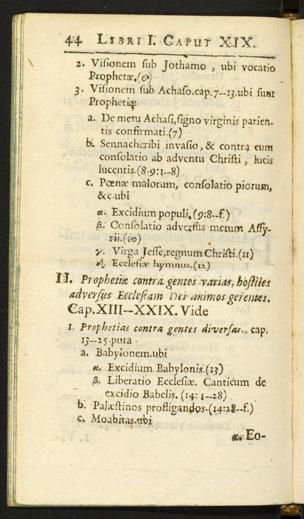 44 LIBRI I. CAPUT XIX.
2. Visionem sub Jothamo, ubi vocatio
Prophetæ.(6)
3. Visionem sub Achaso.cap.7--13.ubi sunt
Prophetiæ
a. De metu Achasi,signo virginis parien-
tis confirmati.(7)
b. Sennacheribi invasio, & contra eum
consolatio ab adventu Christi, lucis
lucentis.(8-9:1--8)
c. Pœnæ malorum, consolatio piorum,
&c.ubi
α. Excidium populi.(9:8--f.)
β. Consolatio adversus metum Assy-
rii.(10)
γ. Virga Jesse,regnum Christi.(11)
δ. Ecclesiæ hymnus.(12)
II. Prophetiæ contra gentes varias, hostiles
adversus Ecclesiam Dei animos gerentes.
Cap.XIII--XXIX. Vide
1. Prophetias contra gentes diversas. cap.
13--25.puta
a. Babylonem.ubi
α. Excidium Babylonis.(13)
β. Liberatio Ecclesiæ. Canticum de
excidio Babelis. (14:1--28)
b. Palæstinos profligandos.(14:28--f.)
c. Moabitas.ubi
α. Eo-